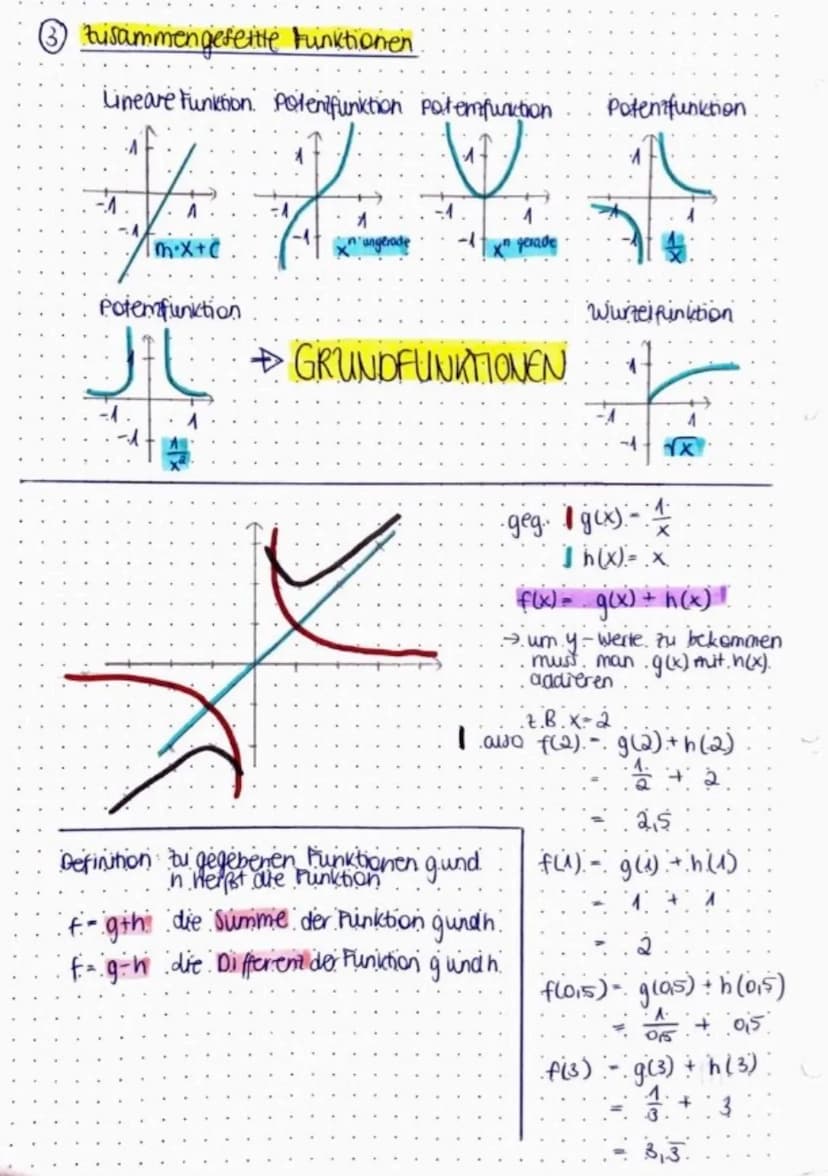 ③ Zusammengesetzte Funktionen
Lineare Funktion Potenzfunktion Potenzfunktion Potenzfunktion
1 1 1 1
-1 1 -1 1 -1 1 1
-1 -1 -1 -1
m·x+c x^n ungerade x^n gerade 1/x
Potenzfunktion Wurzelfunktion
→ GRUNDFUNKTIONEN
1 1
-1 1 -1 1
-1 -1
1/x² √x
geg. g(x) = 1/x
h(x) = x
f(x) = g(x) + h(x)!
→ um y-Werte zu bekommen
muss man g(x) mit h(x)
addieren
z.B. x=2
also f(2) = g(2) + h(2)
= 1/2 + 2
= 2,5
f(1) = g(1) + h(1)
= 1 + 1
= 2
f(0,5) = g(0,5) + h(0,5)
= 1/0,5 + 0,5
f(3) = g(3) + h(3)
= 1/3 + 3
= 3,3̅
Definition: Zu gegebenen Funktionen g und
h heißt die Funktion
f = g+h die Summe der Funktion g und h.
f = g-h die Differenz der Funktion g und h.